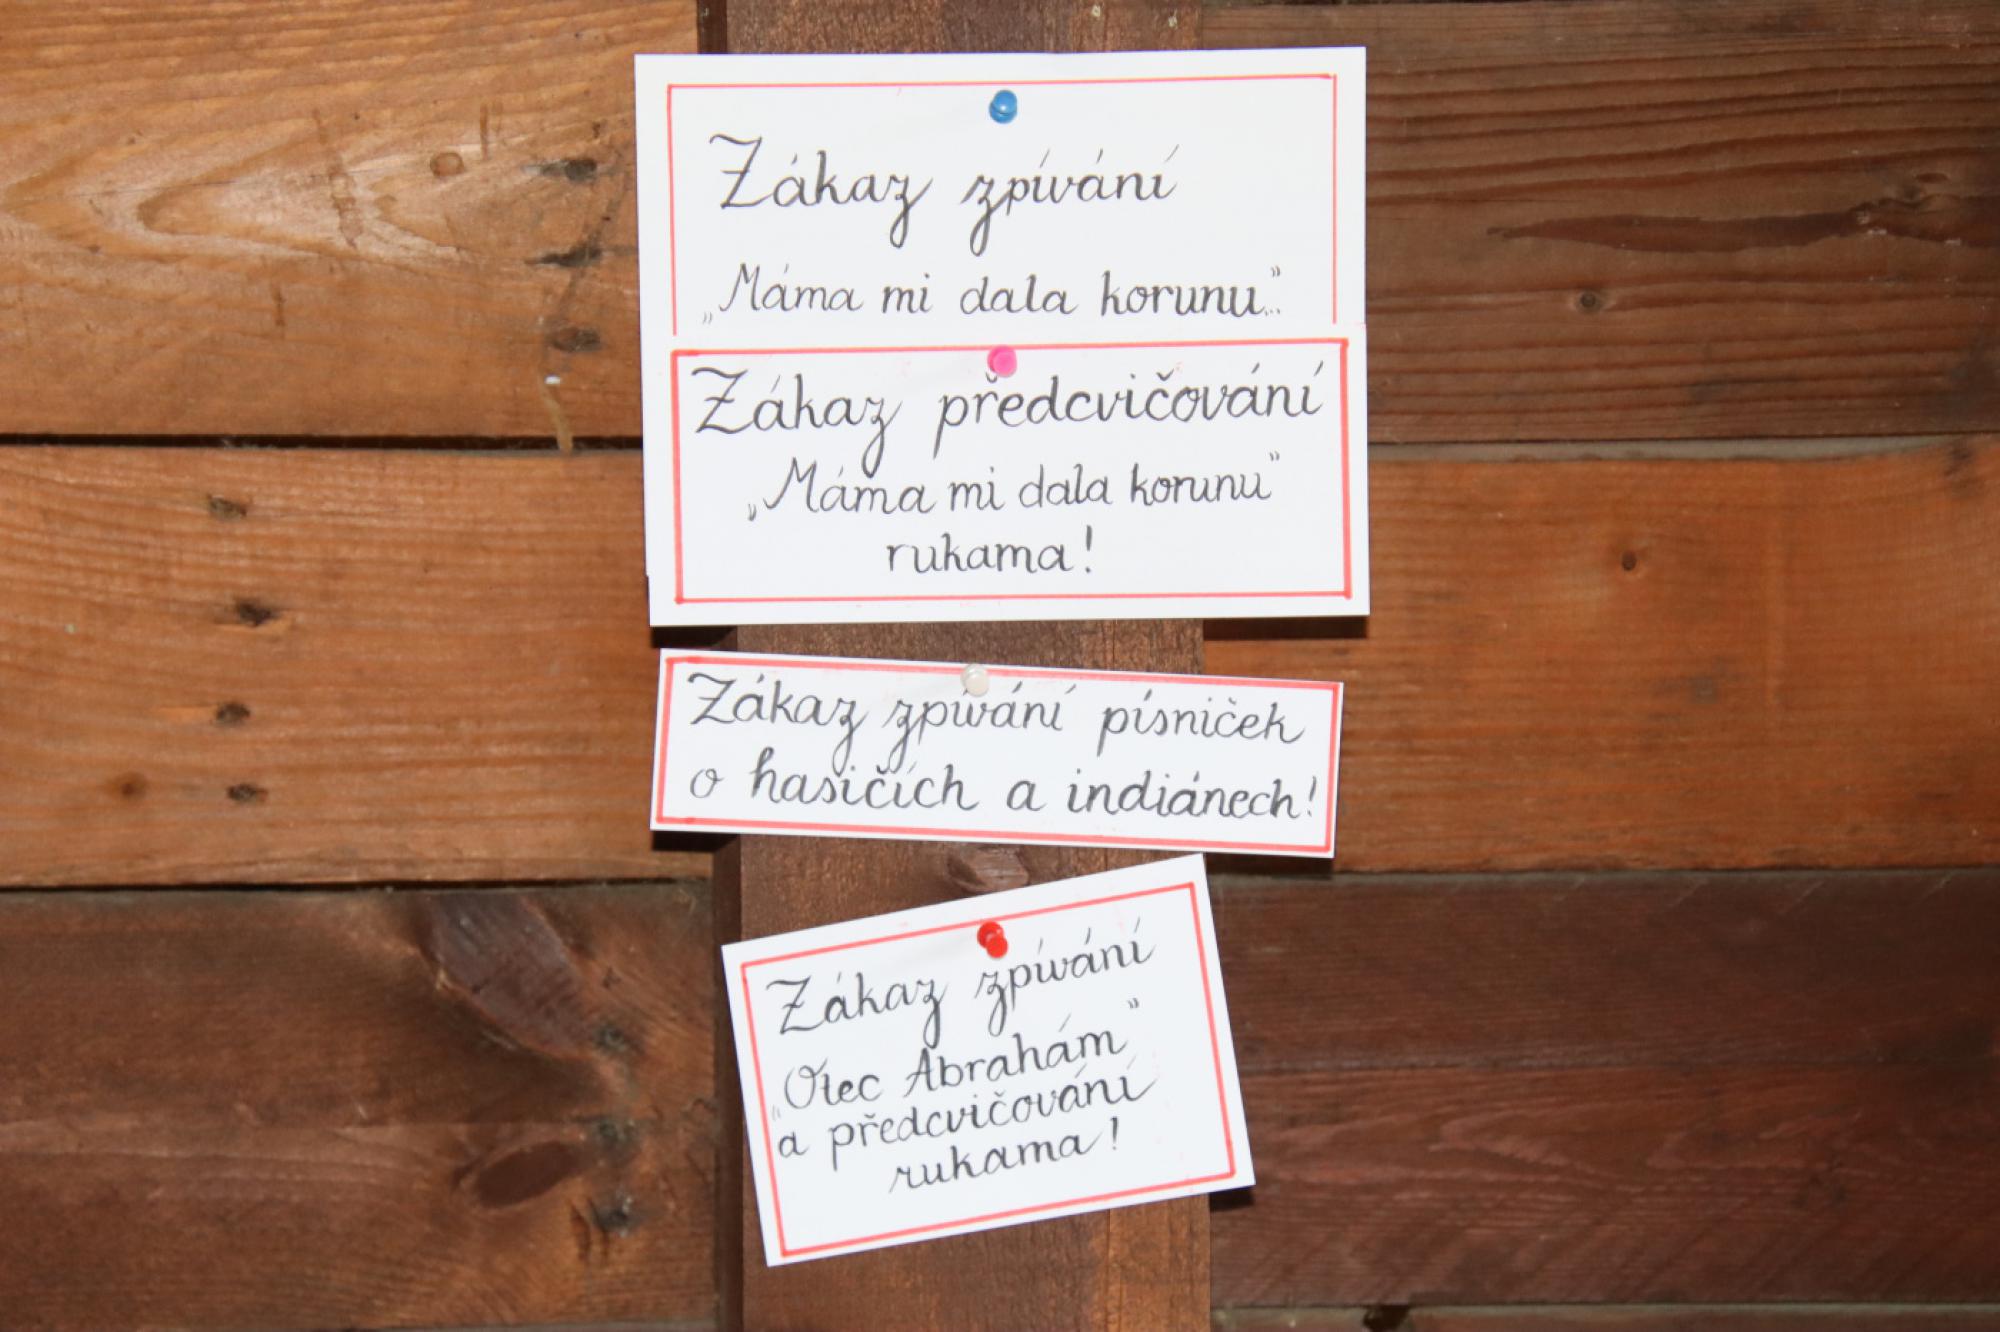 Zákaz zpívání
„Máma mi dala korunu..."
Zákaz předcvičování
„Máma mi dala korunu"
rukama!
Zákaz zpívání písniček
o hasičích a indiánech!
Zákaz zpívání
„Otec Abrahám"
a předcvičování
rukama!